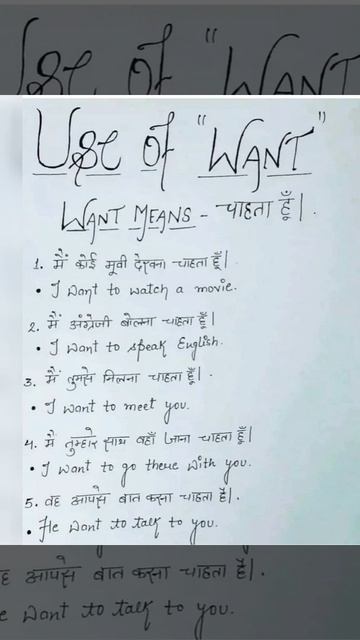 Use of "WANT
Use of "WANT"
WANT MEANS - चाहता हूँ|.
1. मैं कोई मूवी देखना चाहता हूँ|.
• I want to watch a movie.
2. मैं अंग्रेजी बोलना चाहता हूँ|
• I want to speak English.
3. मैं तुमसे मिलना चाहता हूँ|.
• I want to meet you.
4. मैं तुम्हारे साथ वहाँ जाना चाहता हूँ|
• I want to go there with you.
5. वह आपसे बात करना चाहता है|.
• He want to talk to you.
आपसे बात करना चाहता है|.
e want to talk to you.